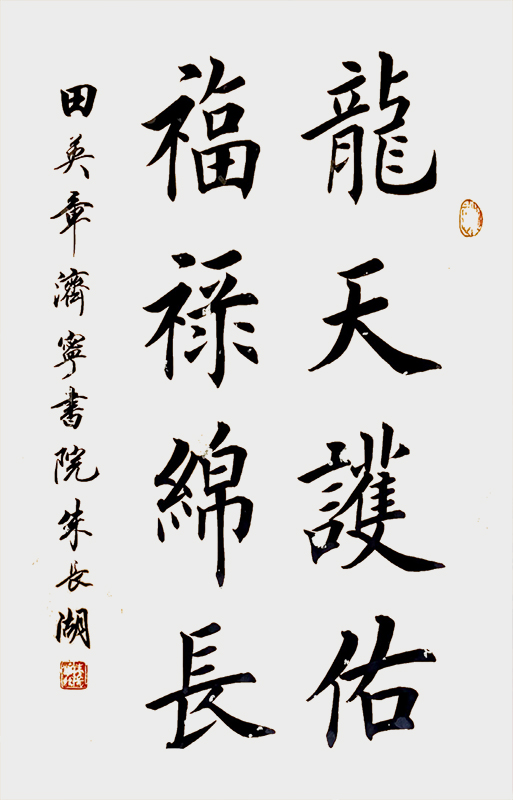 龍天護佑
福祿綿長
田英章濟寧書院朱長湖